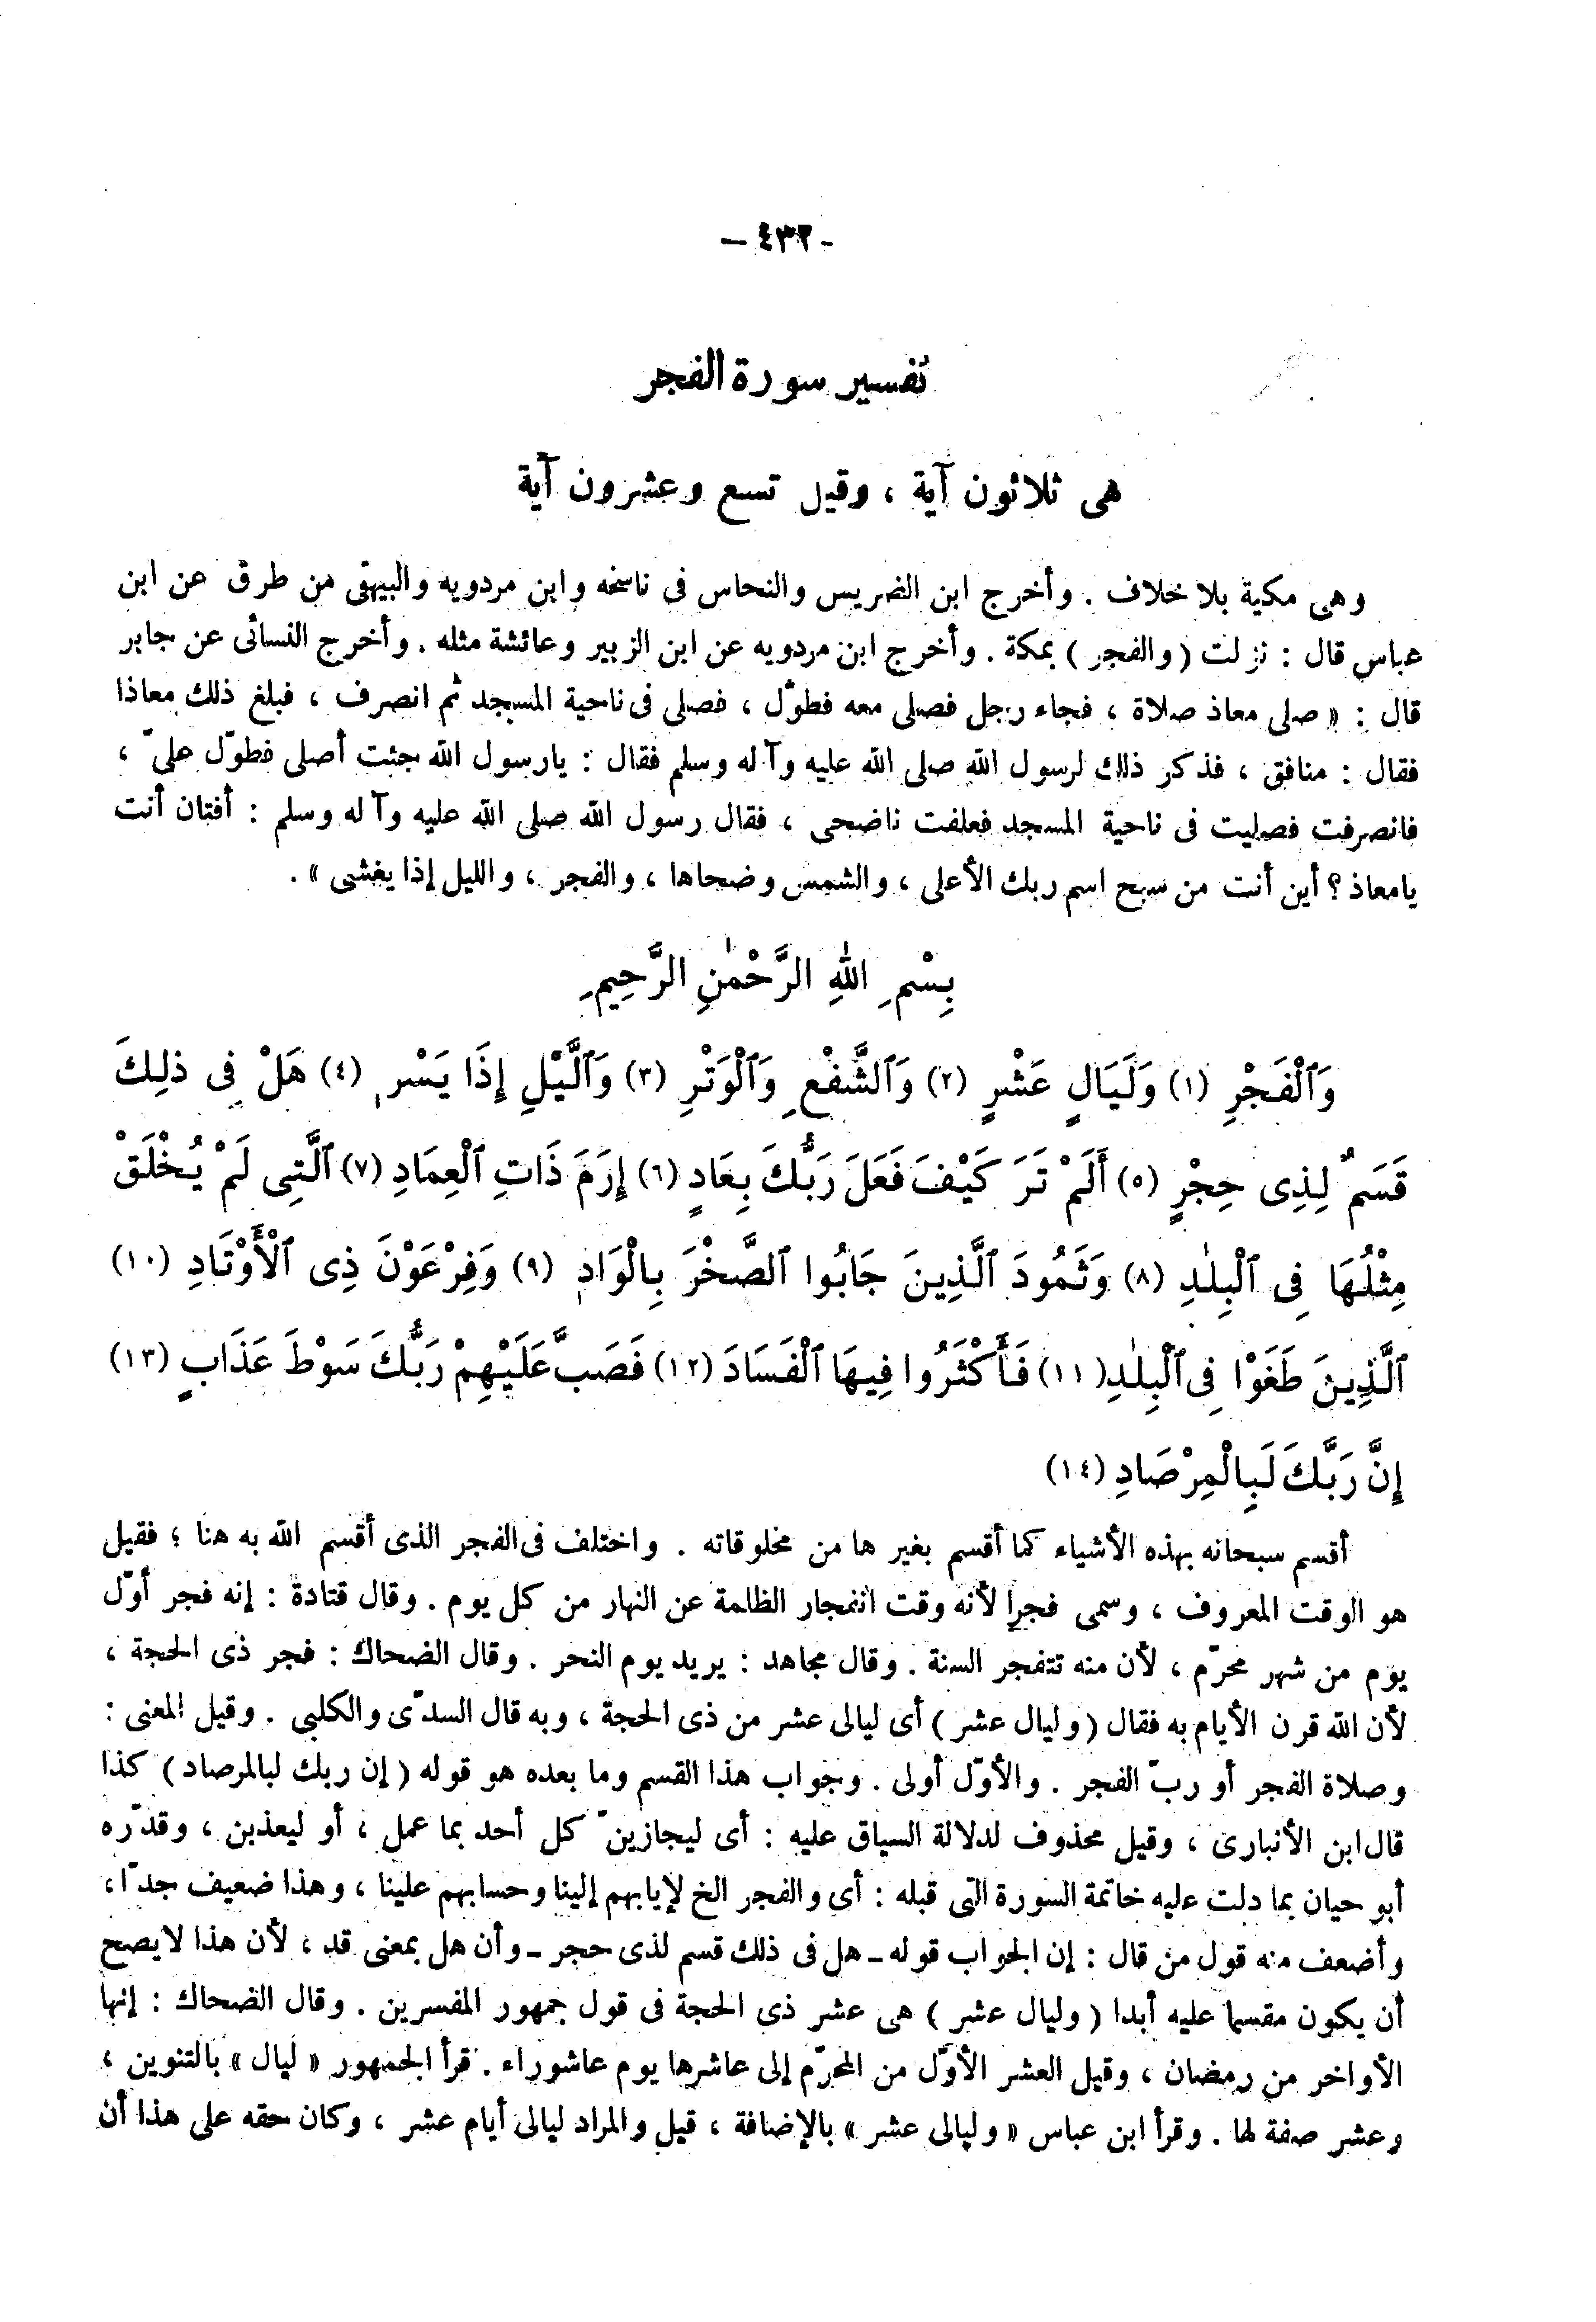 - ٤٣٢ -
تفسير سورة الفجر
هى ثلاثون آية ، وقيل تسع وعشرون آية
وهى مكية بلا خلاف . وأخرج ابن الضريس والنحاس فى ناسخه وابن مردويه والبيهقى من طرق عن ابن
عباس قال : نزلت ( والفجر ) بمكة . وأخرج ابن مردويه عن ابن الزبير وعائشة مثله . وأخرج النسائى عن جابر
قال : « صلى معاذ صلاة ، فجاء رجل فصلى معه فطوّل ، فصلى فى ناحية المسجد ثم انصرف ، فبلغ ذلك معاذا
فقال : منافق ، فذكر ذلك لرسول الله صلى الله عليه وآله وسلم فقال : يارسول الله جئت أصلى فطوّل علىّ ،
فانصرفت فصليت فى ناحية المسجد فعلفت ناضحى ، فقال رسول الله صلى الله عليه وآله وسلم : أفتان أنت
يامعاذ ؟ أين أنت من سبح اسم ربك الأعلى ، والشمس وضحاها ، والفجر ، والليل إذا يغشى » .
بِسْمِ اللهِ الرَّحْمٰنِ الرَّحِيمِ
وَٱلْفَجْرِ (١) وَلَيَالٍ عَشْرٍ (٢) وَٱلشَّفْعِ وَٱلْوَتْرِ (٣) وَٱلَّيْلِ إِذَا يَسْرِ (٤) هَلْ فِى ذٰلِكَ
قَسَمٌ لِذِى حِجْرٍ (٥) أَلَمْ تَرَ كَيْفَ فَعَلَ رَبُّكَ بِعَادٍ (٦) إِرَمَ ذَاتِ ٱلْعِمَادِ (٧) ٱلَّتِى لَمْ يُخْلَقْ
مِثْلُهَا فِى ٱلْبِلٰدِ (٨) وَثَمُودَ ٱلَّذِينَ جَابُوا ٱلصَّخْرَ بِالْوَادِ (٩) وَفِرْعَوْنَ ذِى ٱلْأَوْتَادِ (١٠)
ٱلَّذِينَ طَغَوْا فِى ٱلْبِلٰدِ (١١) فَأَكْثَرُوا فِيهَا ٱلْفَسَادَ (١٢) فَصَبَّ عَلَيْهِمْ رَبُّكَ سَوْطَ عَذَابٍ (١٣)
إِنَّ رَبَّكَ لَبِالْمِرْصَادِ (١٤)
أقسم سبحانه بهذه الأشياء كما أقسم بغيرها من مخلوقاته . واختلف فى الفجر الذى أقسم الله به هنا ؛ فقيل
هو الوقت المعروف ، وسمى فجرا لأنه وقت انفجار الظلمة عن النهار من كل يوم . وقال قتادة : إنه فجر أوّل
يوم من شهر محرّم ، لأن منه تتفجر السنة . وقال مجاهد : يريد يوم النحر . وقال الضحاك : فجر ذى الحجة ،
لأن الله قرن الأيام به فقال ( وليال عشر ) أى ليالى عشر من ذى الحجة ، وبه قال السدّى والكلبى . وقيل المعنى :
وصلاة الفجر أو ربّ الفجر . والأوّل أولى . وجواب هذا القسم وما بعده هو قوله ( إن ربك لبالمرصاد ) كذا
قال ابن الأنبارى ، وقيل محذوف لدلالة السياق عليه : أى ليجازينّ كل أحد بما عمل ، أو ليعذبن ، وقدّره
أبو حيان بما دلت عليه خاتمة السورة التى قبله : أى والفجر الخ لإيابهم إلينا وحسابهم علينا ، وهذا ضعيف جدّا ،
وأضعف منه قول من قال : إن الجواب قوله ـ هل فى ذلك قسم لذى حجر ـ وأن هل بمعنى قد ، لأن هذا لايصح
أن يكون مقسما عليه أبدا ( وليال عشر ) هى عشر ذى الحجة فى قول جمهور المفسرين . وقال الضحاك : إنها
الأواخر من رمضان ، وقيل العشر الأوّل من المحرّم إلى عاشرها يوم عاشوراء . قرأ الجمهور « ليال » بالتنوين ،
وعشر صفة لها . وقرأ ابن عباس « وليالى عشر » بالإضافة ، قيل والمراد ليالى أيام عشر ، وكان حقه على هذا أن